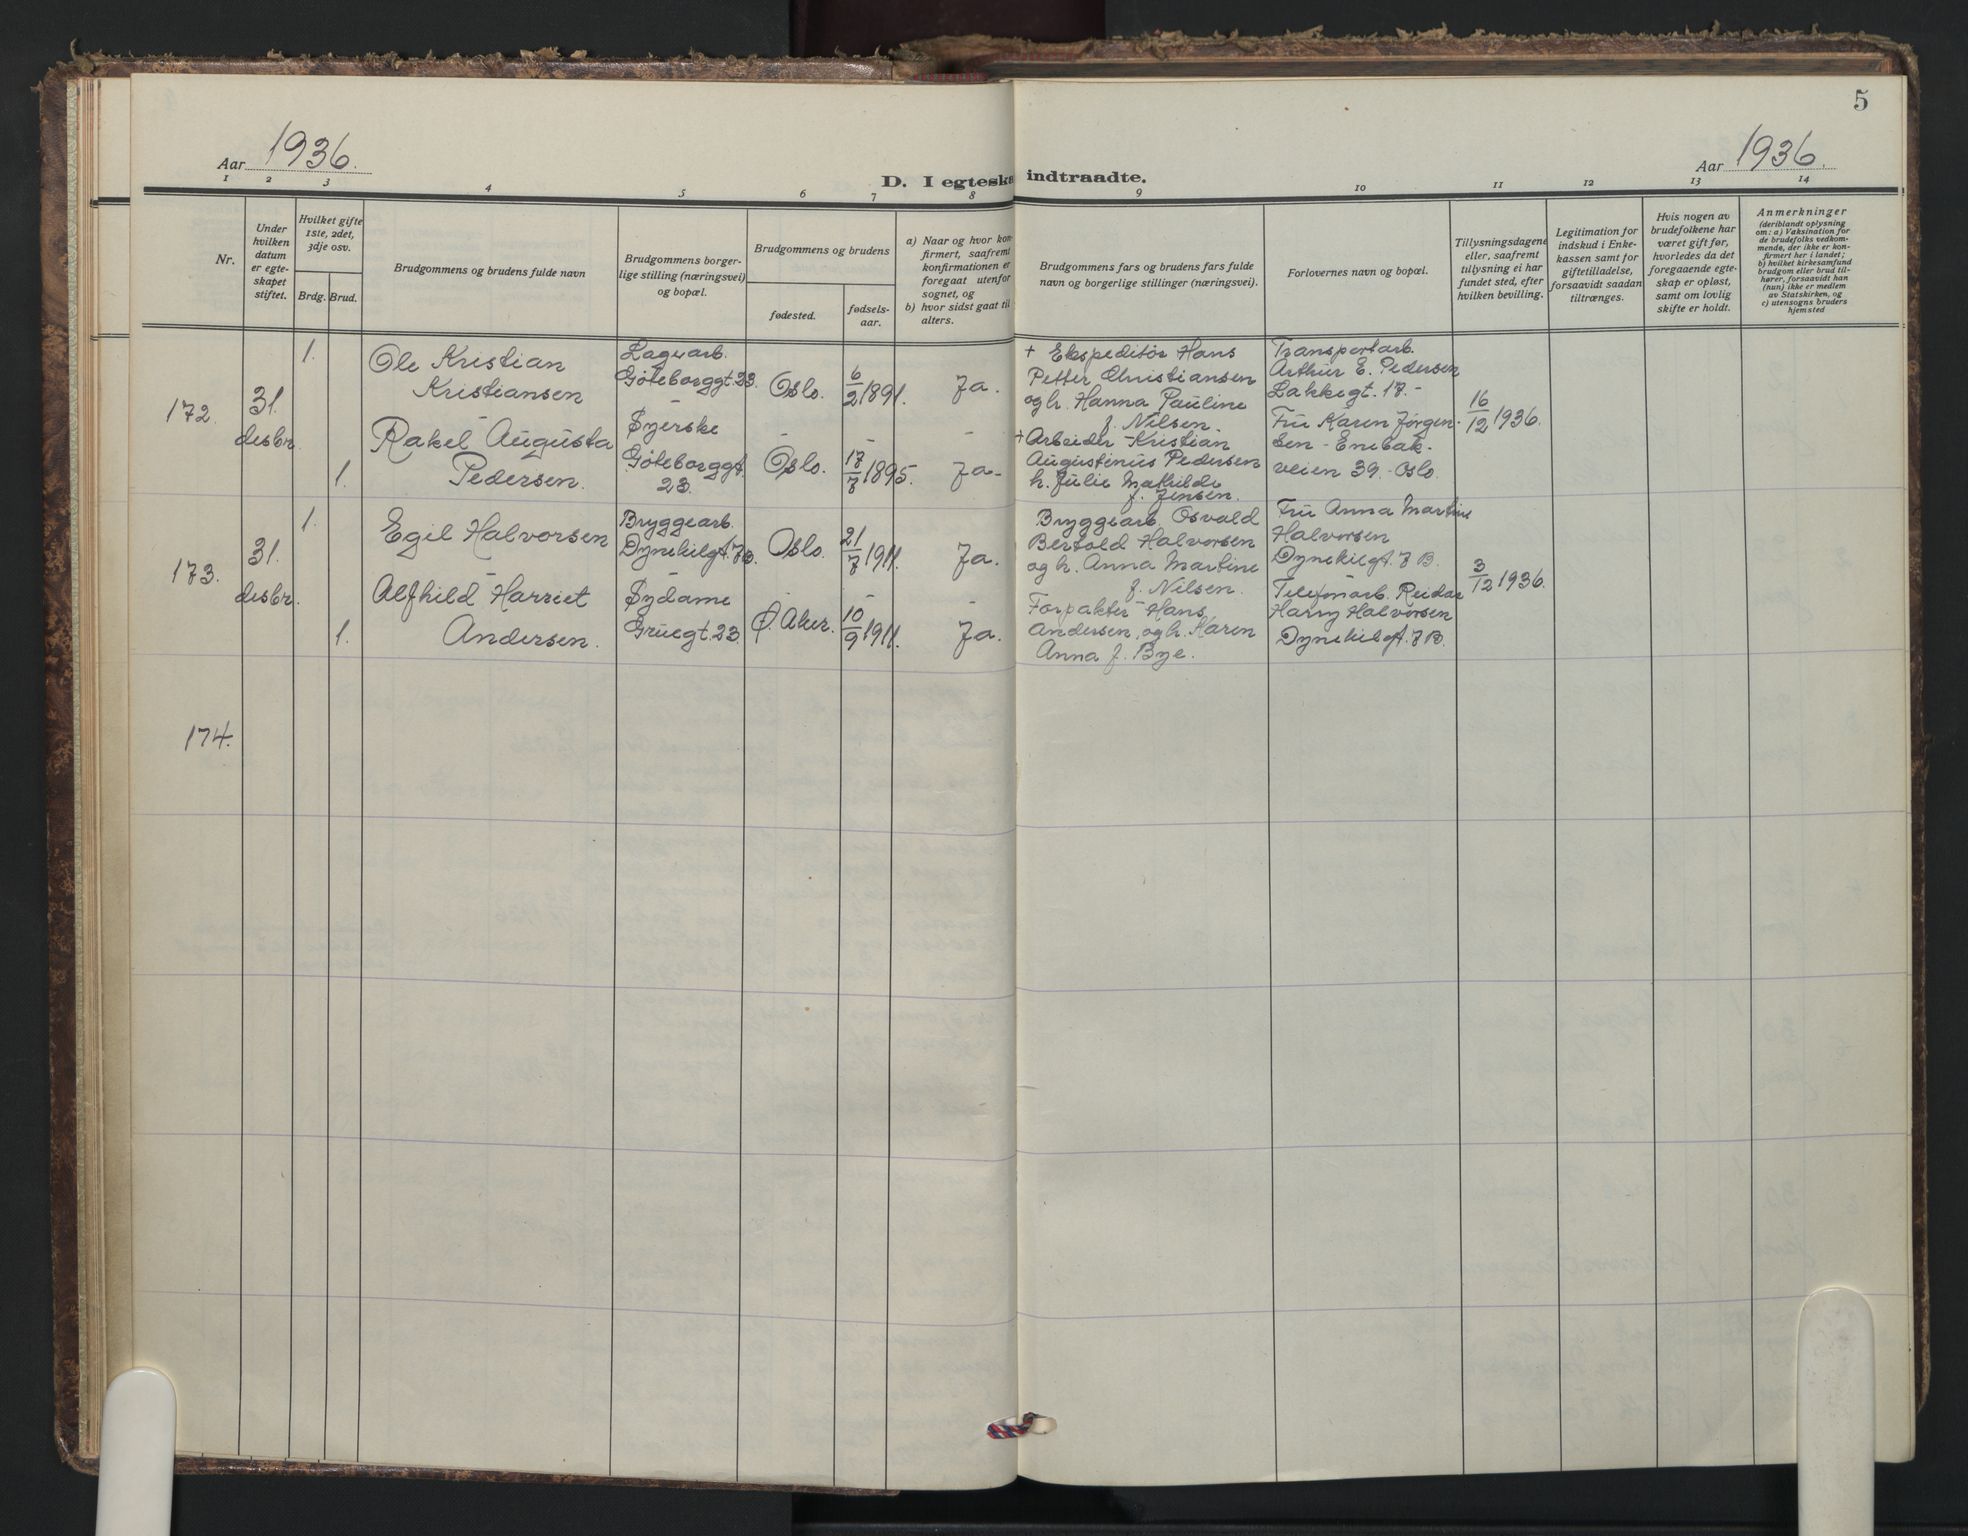 5
Aar 1936.
Aar 1936.
D. I egteska indtraadte.
1 2 3 4 5 6 7 8 9 10 11 12 13 14
Nr.
Under
hvilken
datum
er egte-
skapet
stiftet.
Hvilket gifte
1ste, 2det,
3dje osv.
Brdg. Brud.
Brudgommens og brudens fulde navn
Brudgommens borger-
lige stilling (næringsvei)
og bopæl.
Brudgommens og brudens
fødested.
fødsels-
aar.
a) Naar og hvor kon-
firmert, saafremt
konfirmationen er
foregaat utenfor
sognet, og
b) hvor sidst gaat til
alters.
Brudgommens fars og brudens fars fulde
navn og borgerlige stillinger (næringsvei).
Forlovernes navn og bopæl.
Tillysningsdagene
eller, saafremt
tillysning ei har
fundet sted, efter
hvilken bevilling.
Legitimation for
indskud i Enke-
kassen samt for
giftetilladelse,
forsaavidt saadan
tiltrænges.
Hvis nogen av
brudefolkene har
været gift før,
hvorledes da det
foregaaende egte-
skap er opløst,
samt om lovlig
skifte er holdt.
Anmerkninger
(deriblandt oplysning
om: a) Vaksination for
de brudefolks vedkom-
mende, der ikke er kon-
firmert her i landet;
b) hvilket kirkesamfund
brudgom eller brud til-
hører, forsaavidt han
(hun) ikke er medlem
av Statskirken, og
c) utensogns bruders
hjemsted
172.
31.
desbr.
1.
Ole Kristian
Kristiansen
Lagerarb.
Göteborggt. 23.
Oslo.
6/2 1891.
Ja.
+ Ekspeditör Hans
Petter Christiansen
og h. Hanna Pauline
f. Nilsen.
Transportarb.
Arthur E. Pedersen
Lakkegt. 17.-
Fru Karen Jörgen-
sen - Enebak-
veien 39. - Oslo
16/12 1936.
1.
Rakel Augusta
Pedersen.
Syerske
Göteborggt.
23.
Oslo.
17/7 1895.
Ja.
+ Arbeider Kristian
Augustinus Pedersen
h. Julie Mathilde
f. Jensen.
173.
31.
desbr.
1.
Egil Halvorsen
Bryggearb.
Dynekilgt. 7B.
Oslo.
21/7 1911.
Ja.
Bryggearb. Osvald
Bertold Halvorsen
og h. Anna Martine
f. Nilsen.
Fru Anna Martine
Halvorsen
Dynekilgt. 7 B.
Telefonarb. Reidar
Harry Halvorsen
Dynekilgt. 7 B.
3/12 1936.
1.
Alfhild Harriet
Andersen.
Sydame
Gruegt. 23
Ø. Aker.
10/9 1911.
Ja.
Forpakter Hans
Andersen og h. Karen
Anna f. Bye.
174.